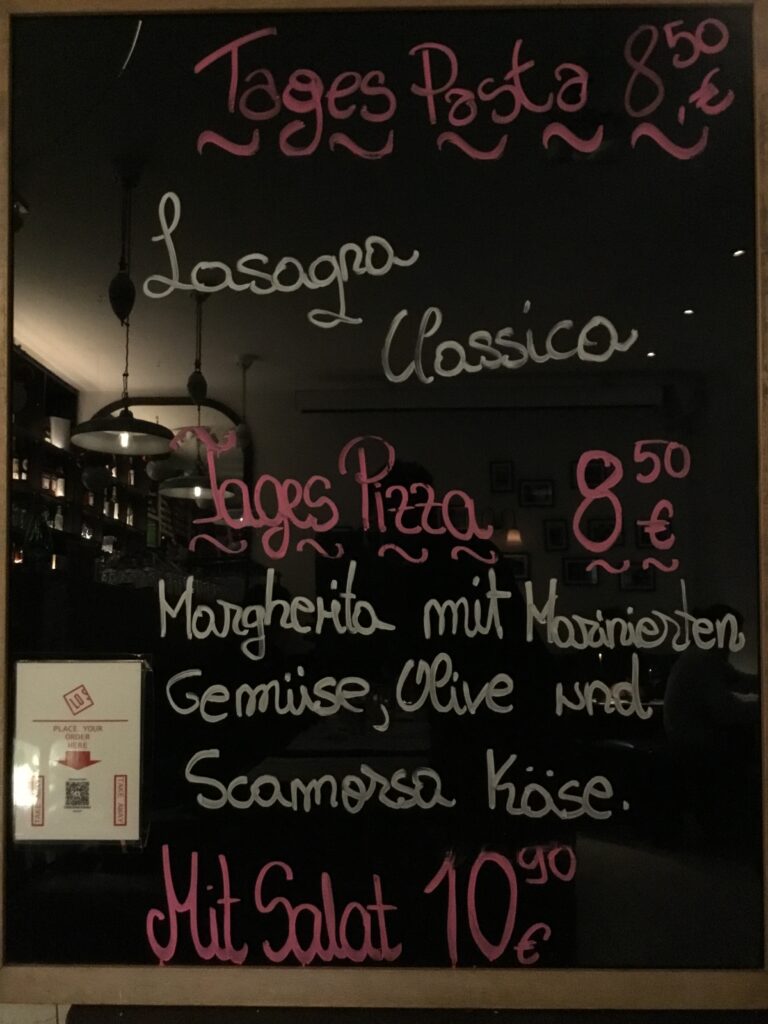 Tages Pasta 8,50 €
Lasagna
Classica.
Tages Pizza 8 50 €
Margherita mit Marinierten
Gemüse, Olive und
Scamorsa Käse.
LOS
PLACE YOUR
ORDER
HERE
TAKE AWAY
TAKE AWAY
Mit Salat 10 90 €